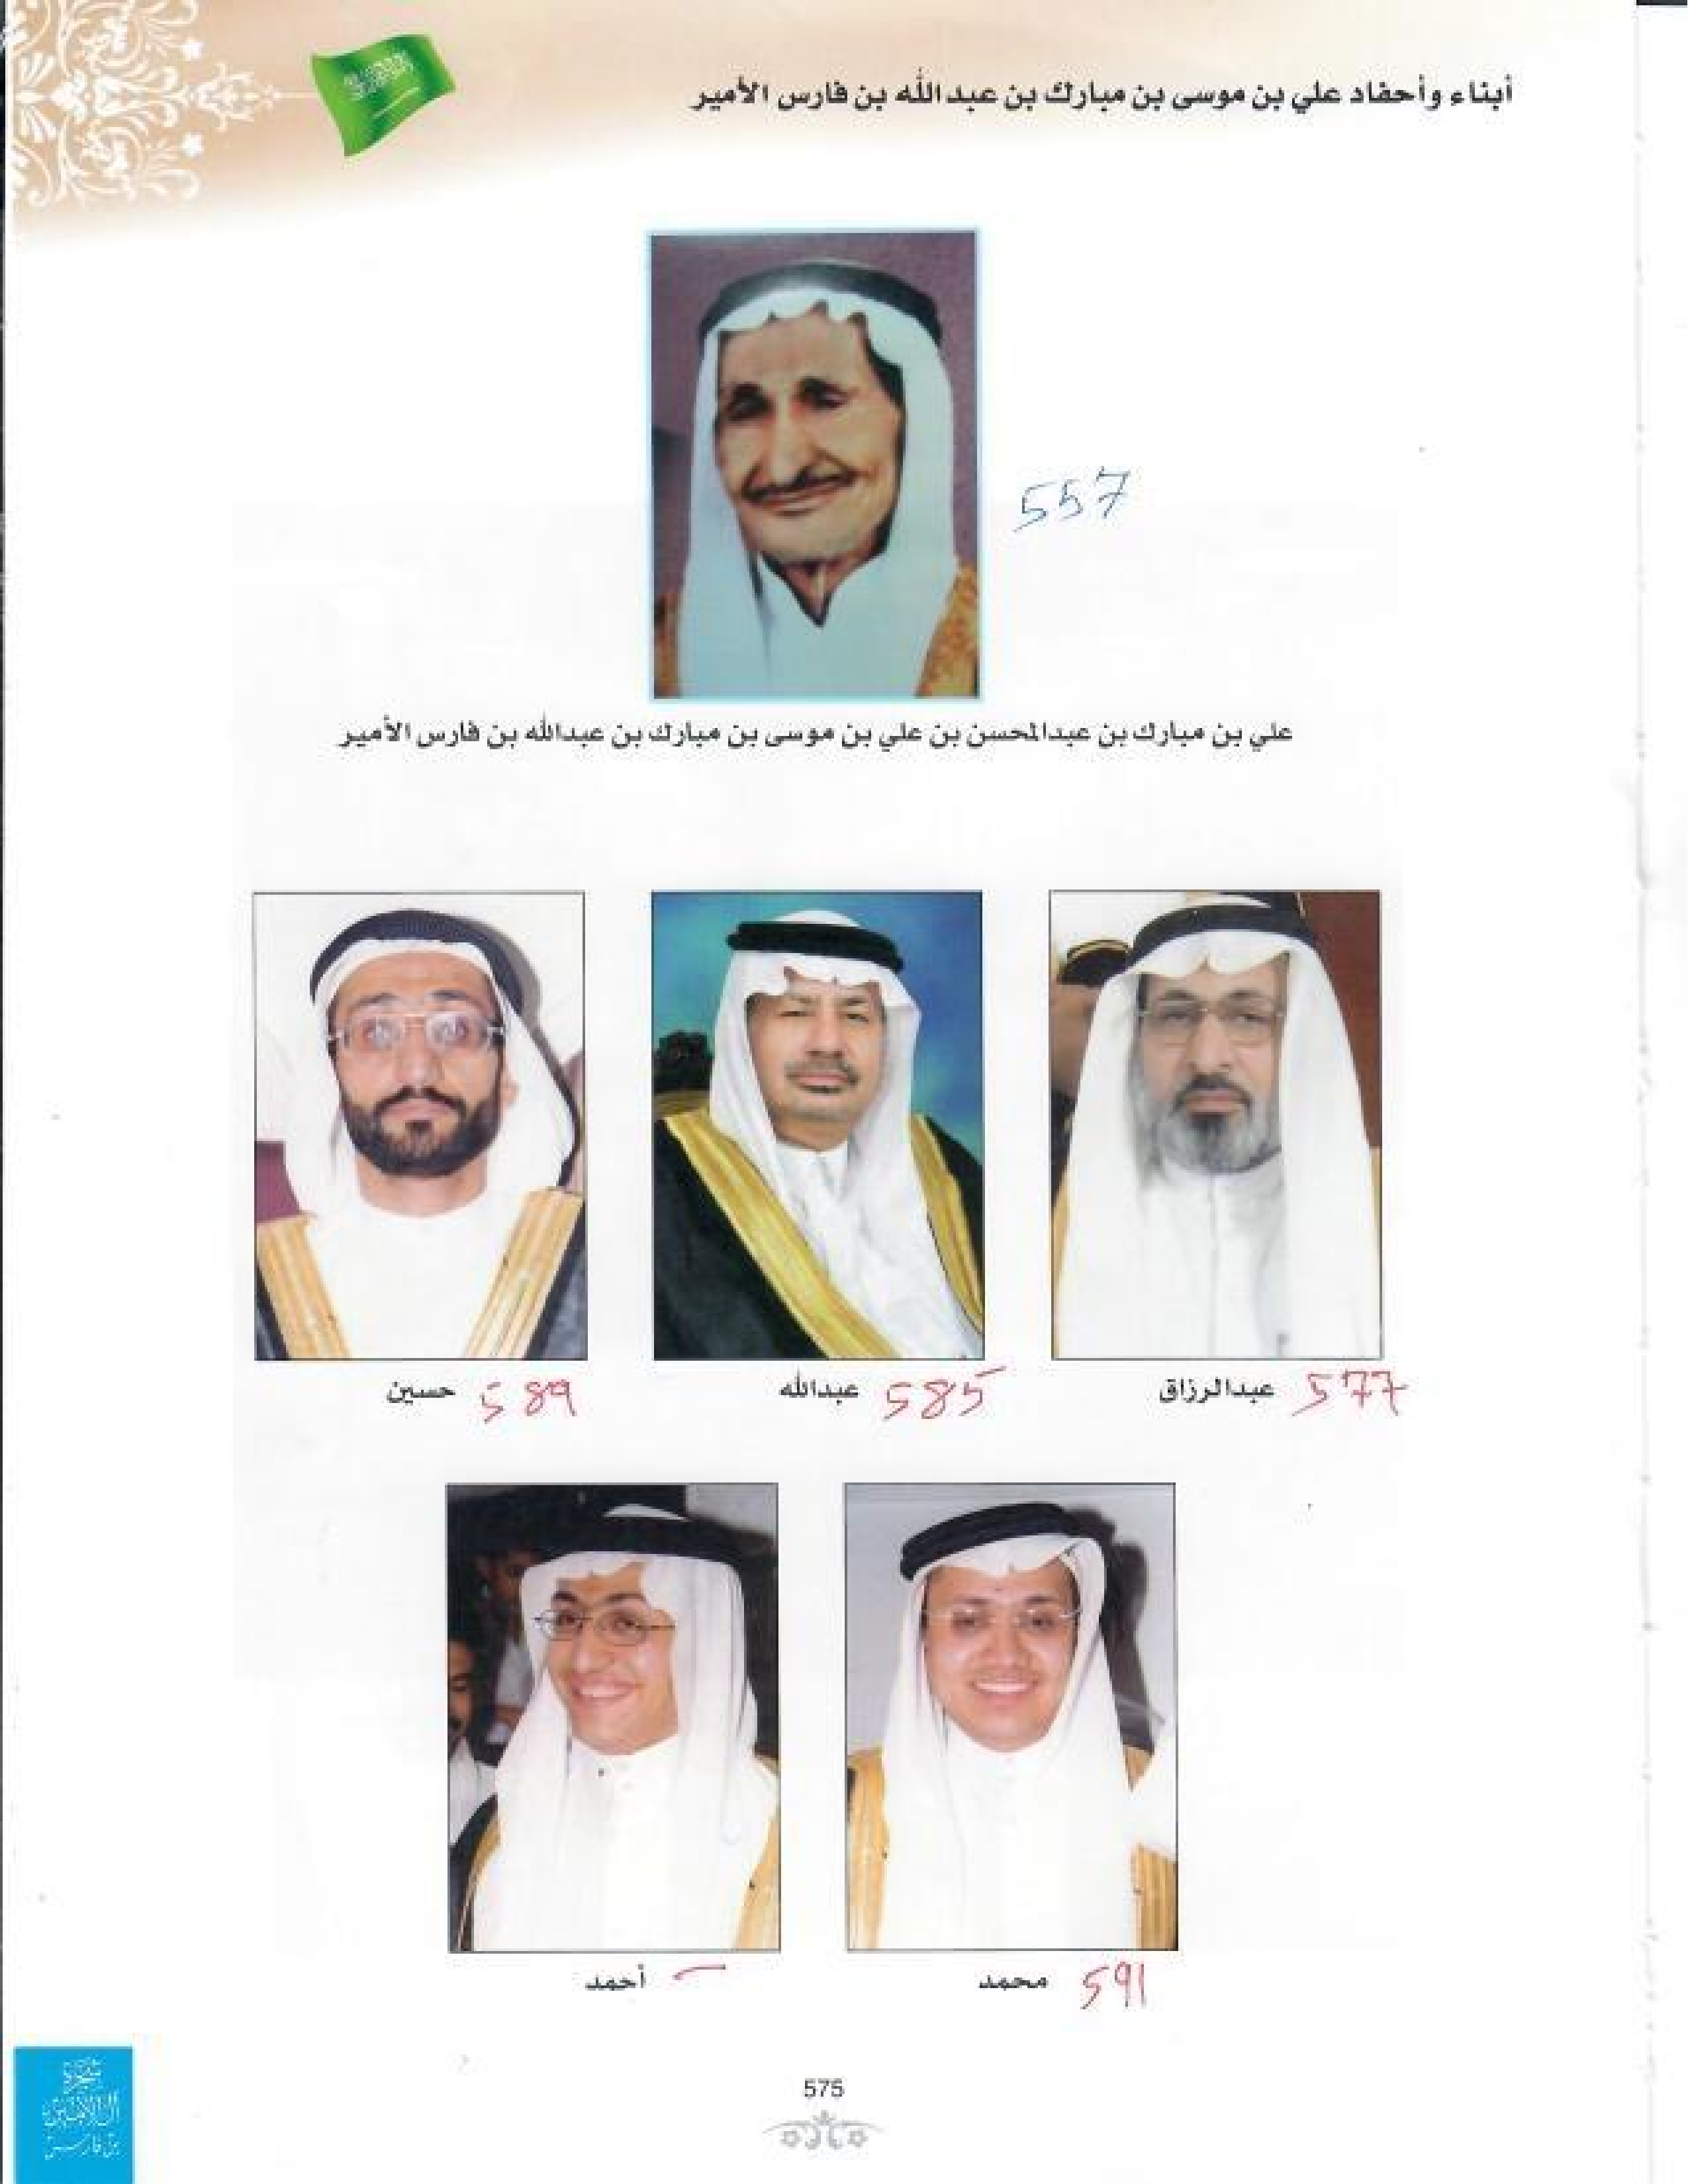 أبناء وأحفاد علي بن موسى بن مبارك بن عبد الله بن فارس الأمير
557
علي بن مبارك بن عبدالمحسن بن علي بن موسى بن مبارك بن عبدالله بن فارس الأمير
577 عبدالرزاق 585 عبدالله 589 حسين
591 محمد أحمد
575
شجرة
آل الأمير
بن فارس